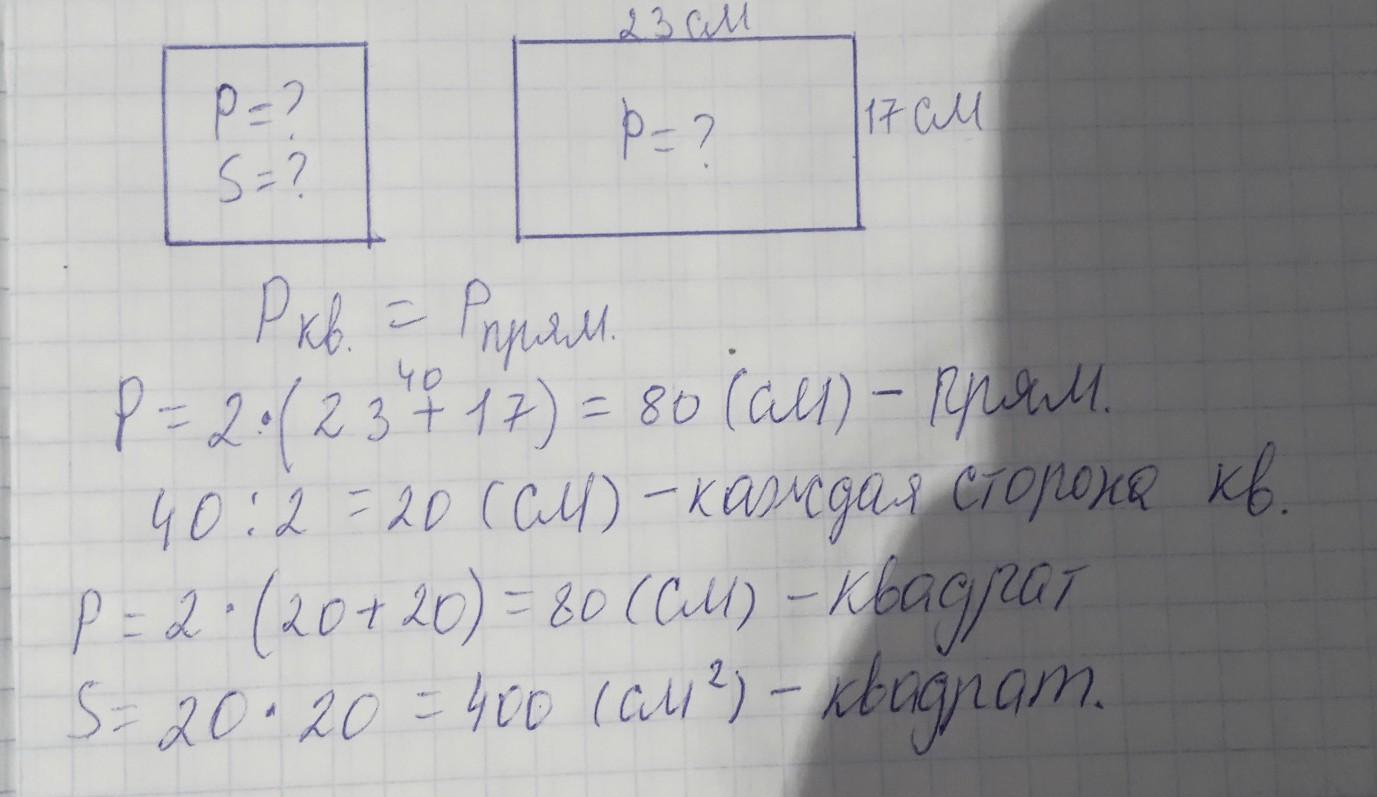 23 см
P = ?
S = ?
P = ?
17 см
Pкв. = Pпрям.
40
P = 2 · (23 + 17) = 80 (см) – прям.
40 : 2 = 20 (см) – каждая сторона кв.
P = 2 · (20 + 20) = 80 (см) – квадрат
S = 20 · 20 = 400 (см²) – квадрат.